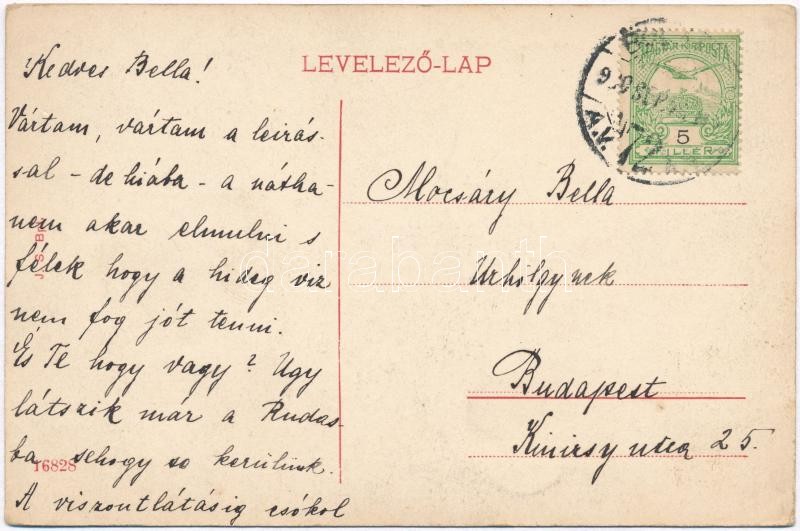 LEVELEZŐ-LAP
Kedves Bella!
Vártam, vártam a leirás-
sal - de hiába - a nátha
nem akar elmulni s
félek hogy a hideg viz
nem fog jót tenni.
És Te hogy vagy? Ugy
látszik már a Rudas-
ba sehogy se kerülünk.
A viszontlátásig csókol
16828
MAGYAR KIR. POSTA
5
FILLÉR
Mocsáry Bella
Urhölgynek
Budapest
Kinizsy utca 25.
darabanth